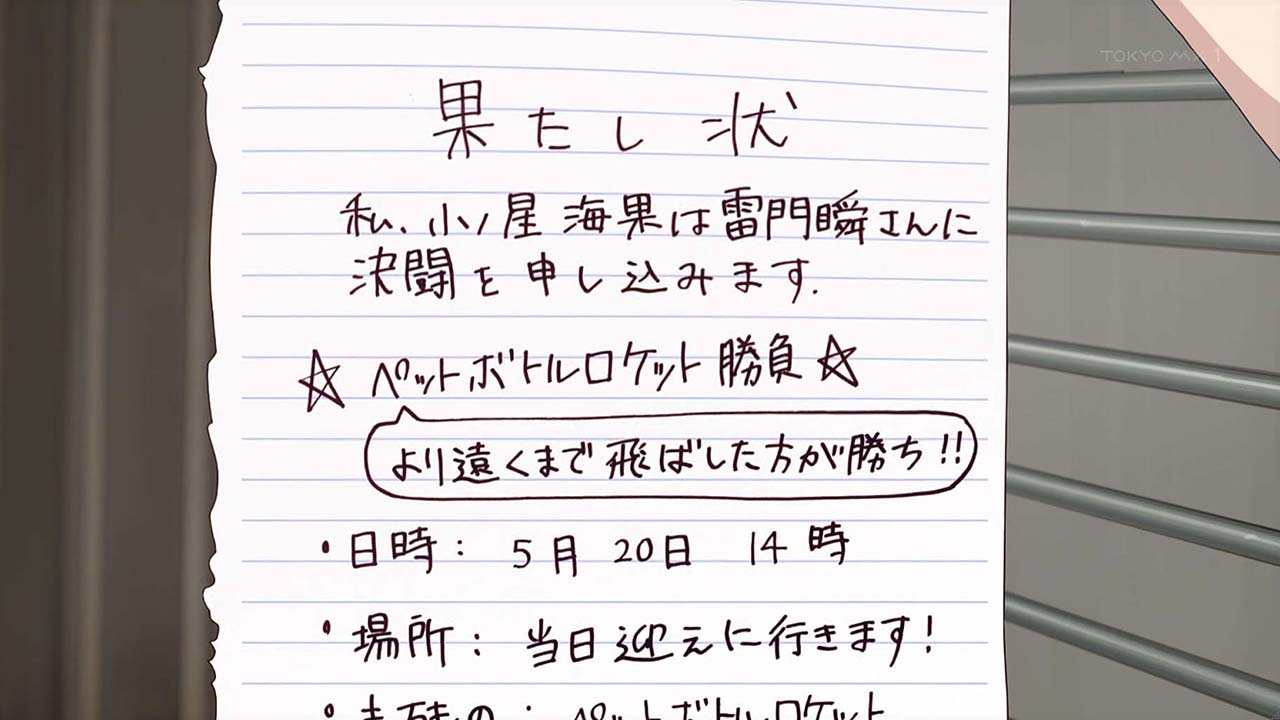 TOKYO MX1
果たし状
私、小ノ星 海果は雷門瞬さんに
決闘を申し込みます.
☆ ペットボトルロケット勝負 ☆
より遠くまで飛ばした方が勝ち!!
・日時: 5月 20日 14時
・場所: 当日迎えに行きます!
ペットボトルロケット